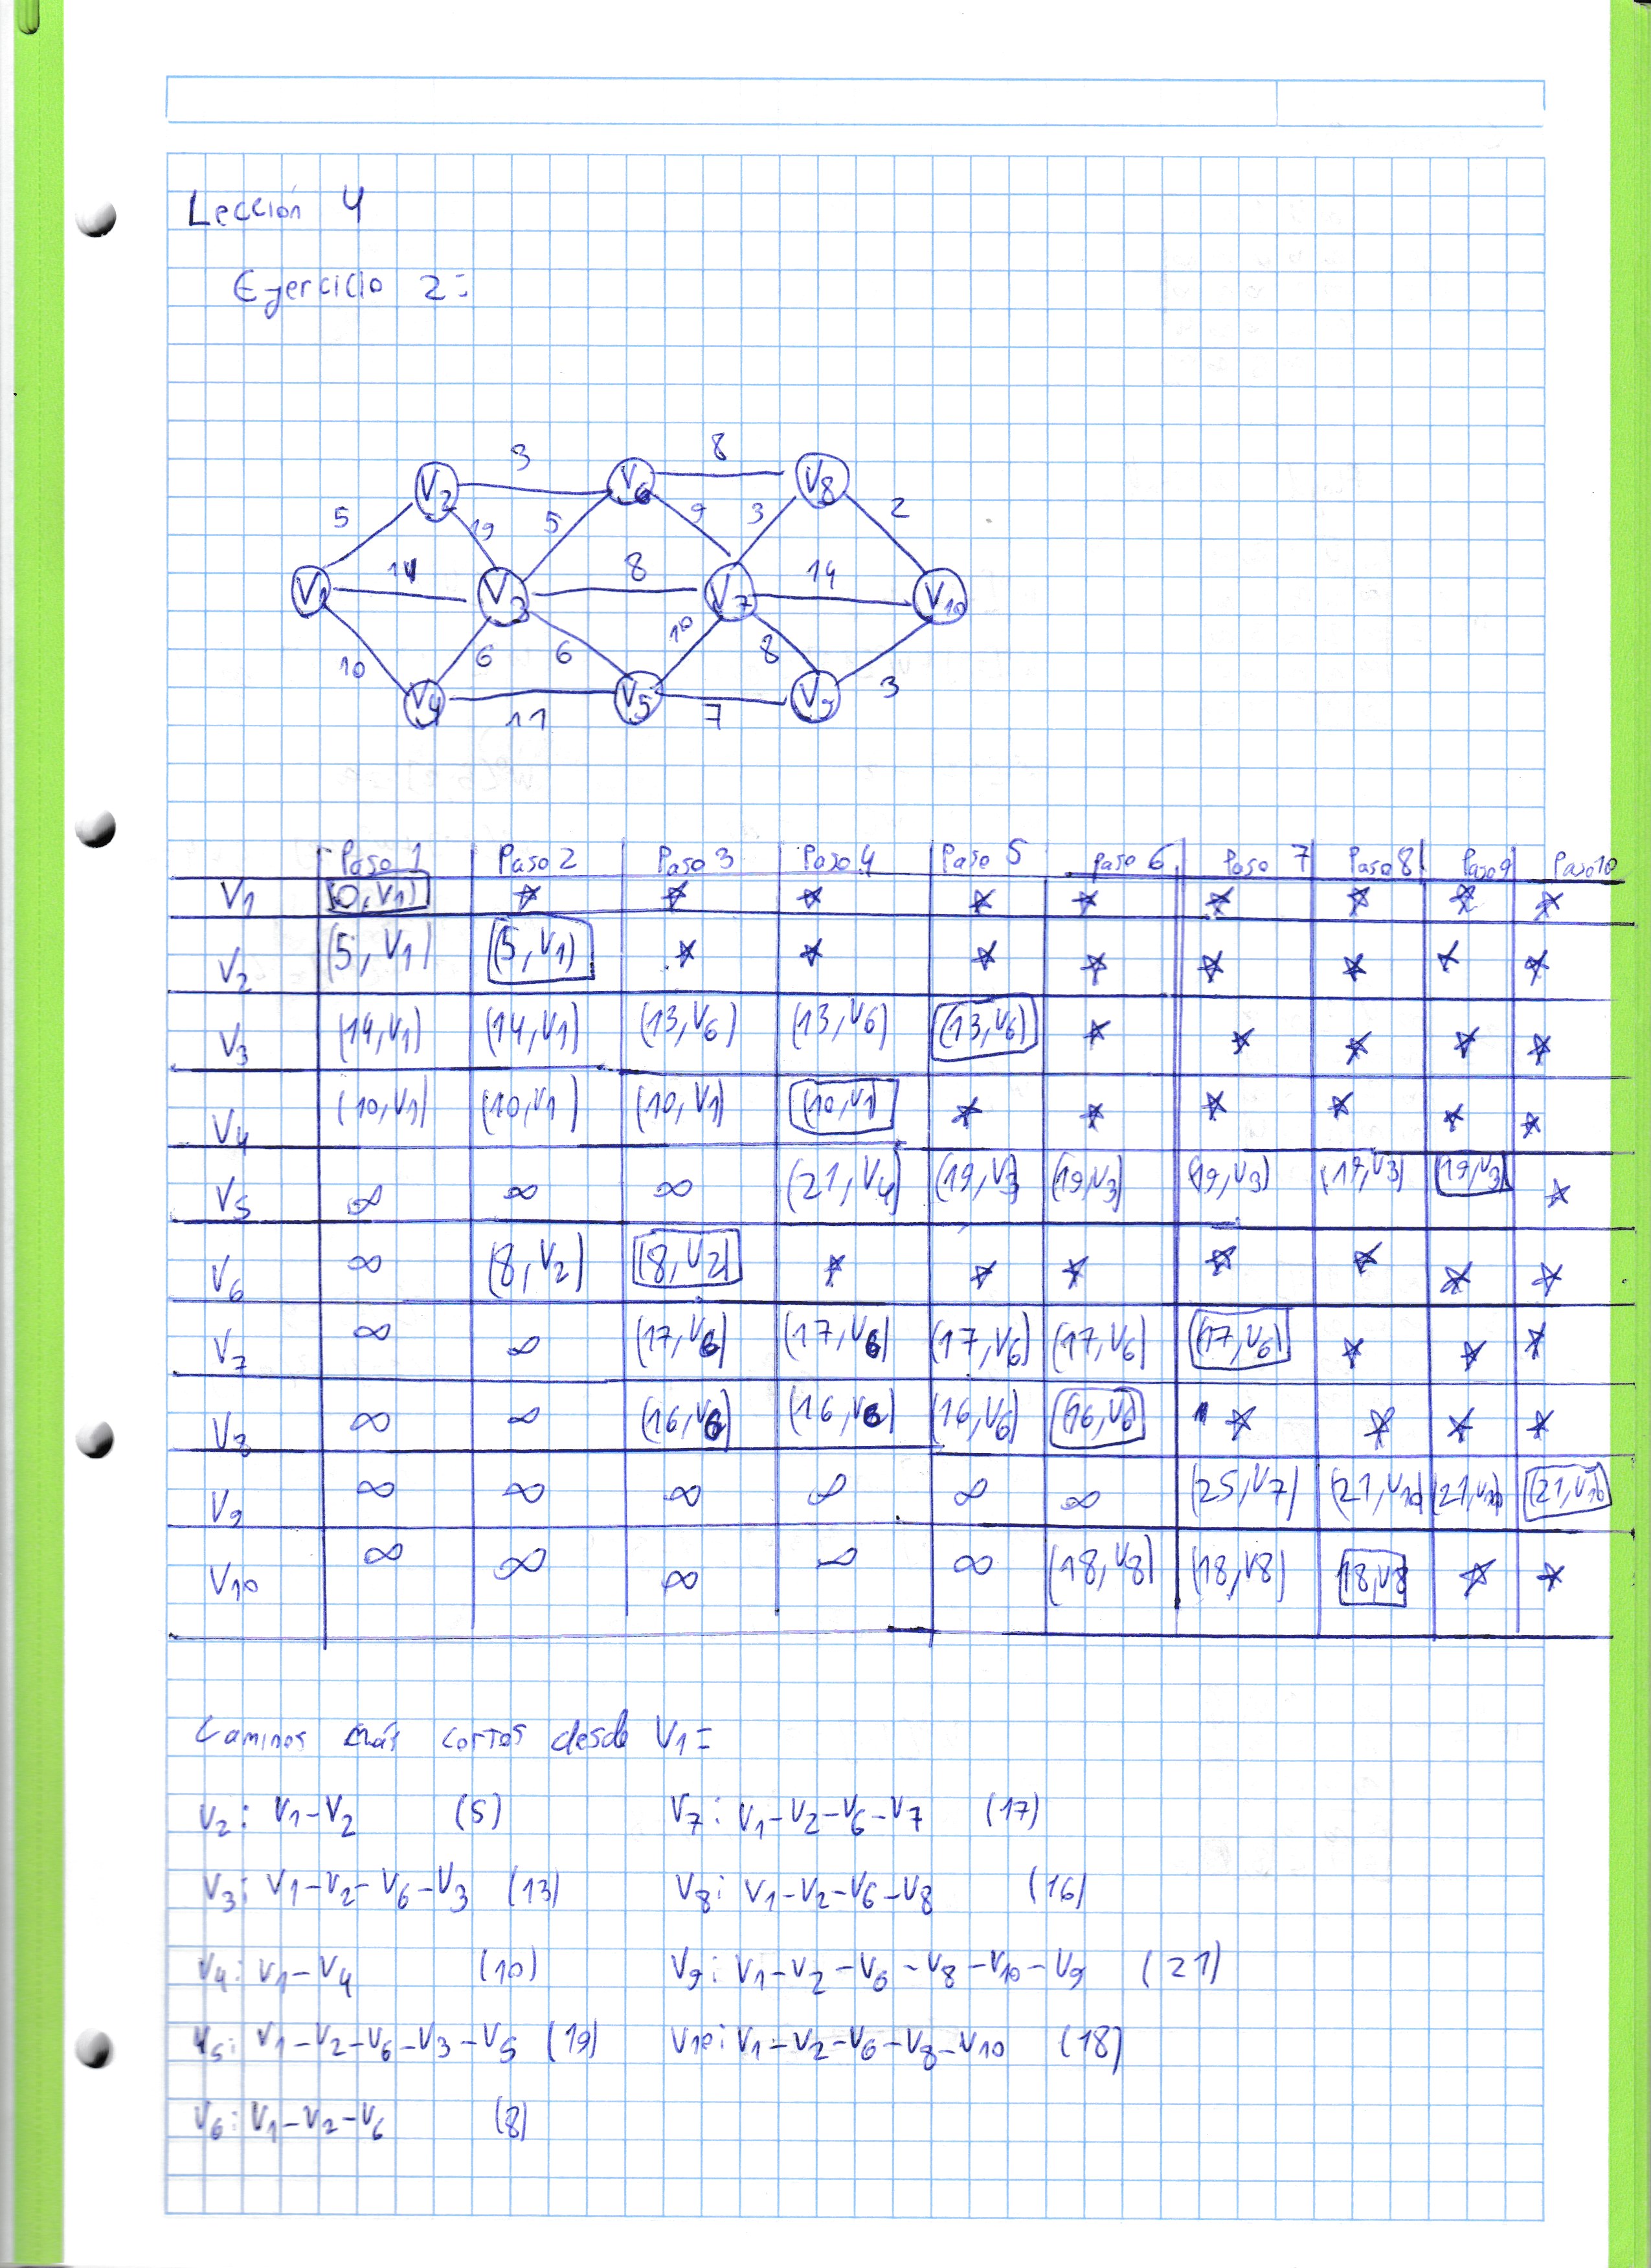 Lección 4
Ejercicio 2=
3 8
V2 V6 V8
5 19 5 9 3 2
14 8 14
V1 V3 V7 V10
10 6 6 10 8 3
V4 V5 V9
11 7
Paso 1 Paso 2 Paso 3 Paso 4 Paso 5 paso 6 Paso 7 Paso 8 Paso 9 Paso 10
V1 (0,V1) * * * * * * * * *
V2 (5,V1) (5,V1) * * * * * * * *
V3 (14,V1) (14,V1) (13,V6) (13,V6) (13,V6) * * * * *
V4 (10,V1) (10,V1) (10,V1) (10,V1) * * * * * *
V5 ∞ ∞ ∞ (21,V4) (19,V3) (19,V3) (19,V3) (19,V3) (19,V3) *
V6 ∞ (8,V2) (8,V2) * * * * * * *
V7 ∞ ∞ (17,V6) (17,V6) (17,V6) (17,V6) (17,V6) * * *
V8 ∞ ∞ (16,V6) (16,V6) (16,V6) (16,V6) * * * *
V9 ∞ ∞ ∞ ∞ ∞ ∞ (25,V7) (21,V10) (21,V10) (21,V10)
V10 ∞ ∞ ∞ ∞ ∞ (18,V8) (18,V8) 18,V8 * *
Caminos más cortos desde V1=
V2: V1-V2 (5) V7: V1-V2-V6-V7 (17)
V3: V1-V2-V6-V3 (13) V8: V1-V2-V6-V8 (16)
V4: V1-V4 (10) V9: V1-V2-V6-V8-V10-V9 (21)
V5: V1-V2-V6-V3-V5 (19) V10: V1-V2-V6-V8-V10 (18)
V6: V1-V2-V6 (8)